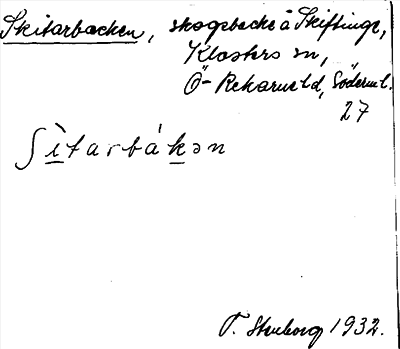 Skitarbacken, skogsbacke å Skiftinge,
Klosters sn,
Ö-Rekarne hd, Söderml.
27
ʃìtarbákən
1932.